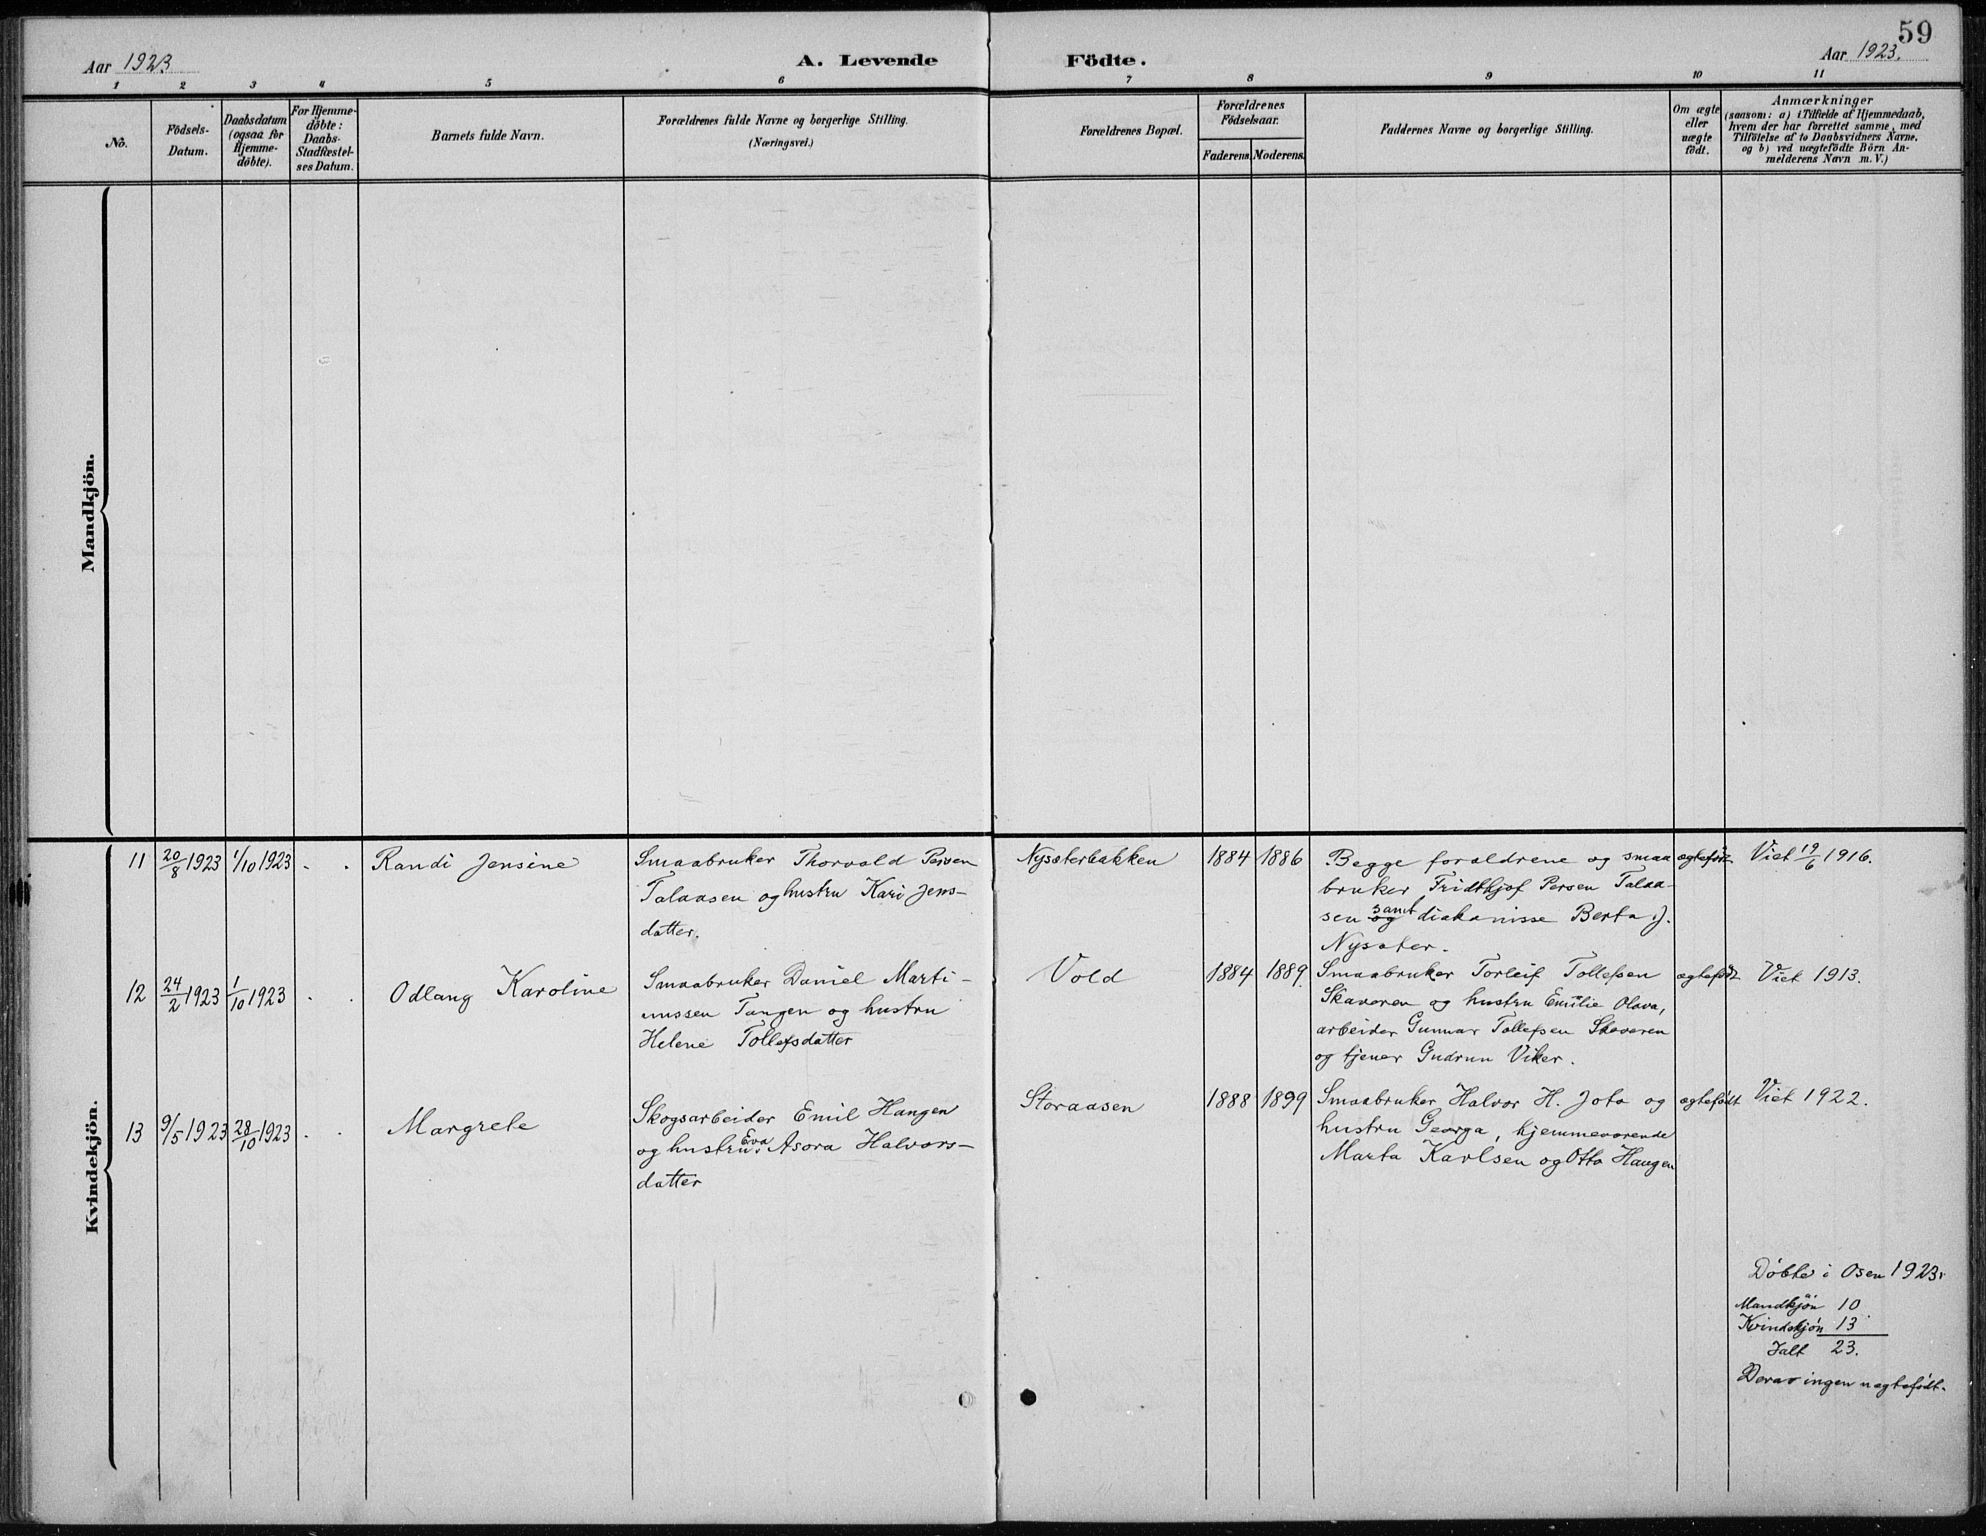 59
Aar 1923 A. Levende Födte. Aar 1923.
1 2 3 4 5 6 7 8 9 10 11
No.
Födsels-
Datum.
Daabsdatum
(ogsaa for
Hjemme-
döbte).
For Hjemme-
döbte:
Daabs-
Stadfestel-
ses Datum.
Barnets fulde Navn.
Forældrenes fulde Navne og borgerlige Stilling.
(Næringsvei.)
Forældrenes Bopæl.
Forældrenes
Födselsaar.
Faderens. Moderens.
Faddernes Navne og borgerlige Stilling.
Om ægte
eller
uægte
födt.
Anmærkninger
(saasom: a) i Tilfælde af Hjemmedaab,
hvem der har forrettet samme, med
Tilföielse af to Daabsvidners Navne,
og b) ved uægtefödte Börn An-
melderens Navn m. V.)
Mandkjön.
Kvindekjön.
11 20/8 1923 1/10 1923 - - Randi Jensine
Smaabruker Thorvald Persen
Talaasen og hustru Kari Jens-
datter.
Nysæterbakken 1884 1886
Begge forældrene og smaa
bruker Fridthjof Persen Talaa-
sen og samt diakonisse Berta J.
Nysæter.
ægtefödt Viet 19/6 1916.
12 24/2 1923 1/10 1923 - - Odlaug Karoline
Smaabruker Daniel Marti-
nussen Tangen og hustru
Helene Tollefsdatter
Vold 1884 1889.
Smaabruker Torleif Tollefsen
Skavoren og hustru Emilie Olava,
arbeider Gunnar Tollefsen Skavoren
og tjener Gudrun Viker.
ægtefödt Viet 1913.
13 9/5 1923 28/10 1923 - - Margrete
Skogsarbeider Emil Haugen
og hustru Eva Asora Halvors-
datter
Storaasen 1888 1899
Smaabruker Halvor H. Jota og
hustru Georga, hjemmeværende
Marta Karlsen og Otto Haugen
ægtefödt Viet 1922.
Döbte i Osen 1923:
Mandkjön 10
Kvindekjön 13
Ialt 23.
Derav ingen uægtefödt.